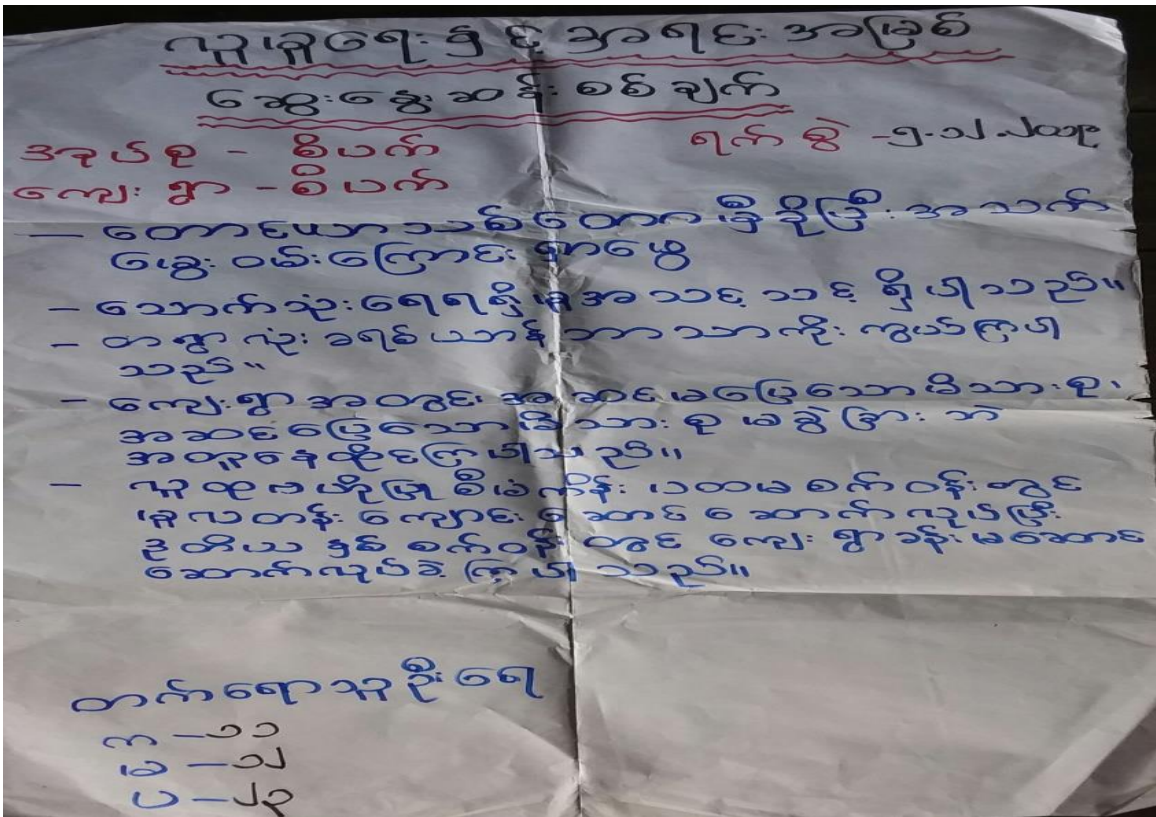 လူမှုရေးနှင့်အရင်းအမြစ်
ဆွေးနွေးဆန်းစစ်ချက်
အုပ်စု - စီပက်
ရက်စွဲ -၅.၁၂.၂၀၁၉
ကျေးရွာ - စီပက်
— တောင်ယာသစ်တောကိုမှီခိုပြီးအသက်
မွေးဝမ်းကြောင်းရှာဖွေ
- သောက်သုံးရေရရှိမှုအသင့်သင့်ရှိပါသည်။
- တရွာလုံးခရစ်ယာန်ဘာသာကိုးကွယ်ကြပါ
သည်။
- ကျေးရွာအတွင်းအဆင်မပြေသောမိသားစု၊
အဆင်ပြေသောမိသားစုမခွဲခြားဘဲ
အတူနေထိုင်ကြပါသည်။
- လူထုဗဟိုပြုစီမံကိန်းပထမစက်ဝန်းတွင်
မူလတန်းကျောင်းဆောင်ဆောက်လုပ်ပြီး
ဒုတိယနှစ်စက်ဝန်းတွင်ကျေးရွာခန်းမဆောင်
ဆောက်လုပ်ခဲ့ကြပါသည်။
တက်ရောက်သူဦးရေ
က - ၁၁
မ - ၁၂
ပ - ၂၃